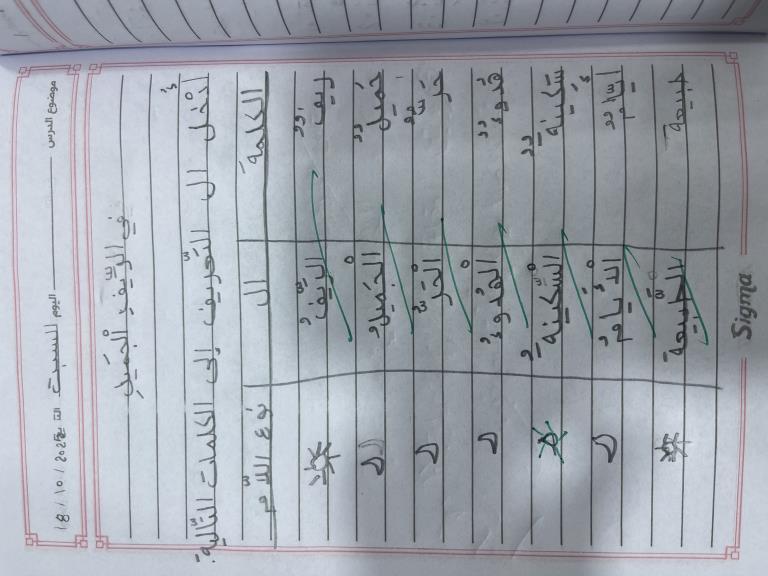 موضوع الدرس اليوم السبت التاريخ 18/10/2025
في الرّيفِ الجَميلِ
أُدْخِل ال التّعريف إلى الكلمات التّالية:
الكلمة ال نوع اللّام
ريفٌ الرّيفُ
جَميلٌ الْجَميلُ
حَرٌّ الْحَرُّ
هُدوءٌ الْهُدوءُ
سَكينَةٌ السَّكينَةُ
أيّامٌ الْأيّامُ
طَبيعَة الطَّبيعَة
Sigma